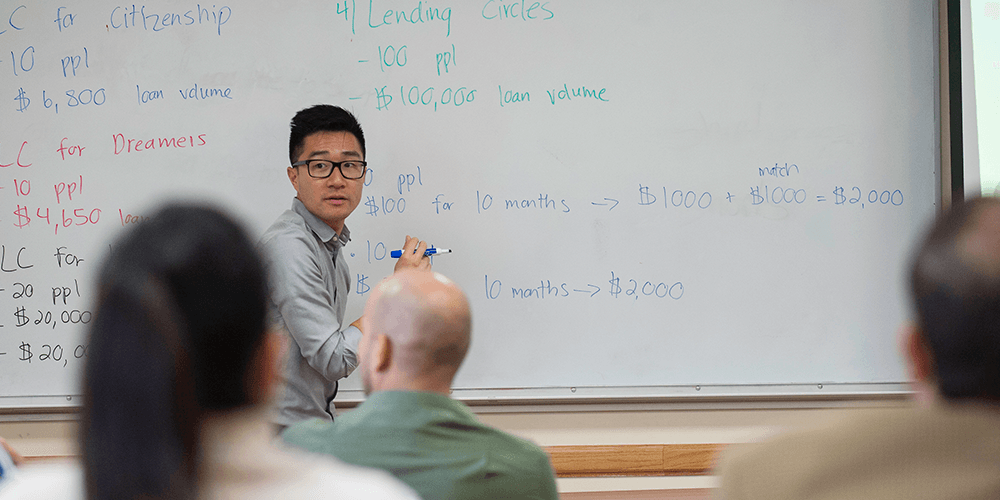 LC for Citizenship
- 10 ppl
$6,800 loan volume
LC for Dreamers
- 10 ppl
- $4,650 loan
LC for
- 20 ppl
$20,000
- $20,0
4) Lending Circles
- 100 ppl
- $100,000 loan volume
ppl
$100 for 10 months → $1000 + $1000 = $2,000
match
10
$ 10 months → $2,000